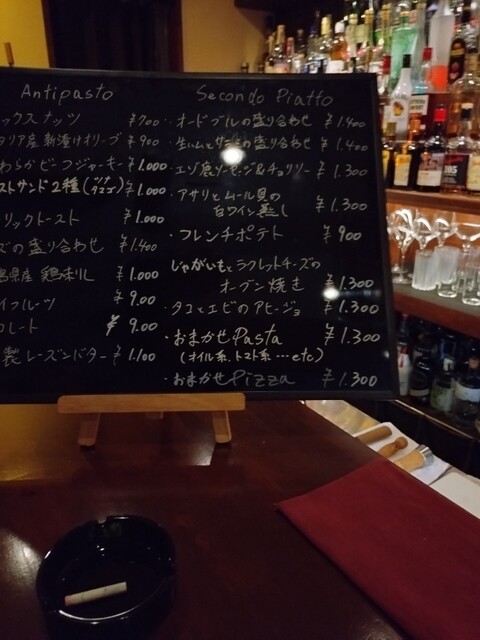 Antipasto
ックスナッツ ¥700
タリア産 新漬けオリーブ ¥900
わらかビーフジャーキー ¥1.000
ストサンド2種(ツナ タマゴ) ¥1.000
リックトースト ¥1.000
ズの盛り合わせ ¥1.400
島県産 鶏刺し ¥1.000
イフルーツ ¥9.00
コレート ¥9.00
製レーズンバター ¥1.100
Secondo Piatto
・オードブルの盛り合わせ ¥1.400
・生ハムとサラミの盛り合わせ ¥1.400
・エゾ鹿ソーセージ&チョリソー ¥1.300
・アサリとムール貝の
白ワイン蒸し ¥1.300
・フレンチポテト ¥900
じゃがいもとラクレットチーズの
オーブン焼き ¥1.300
・タコとエビのアヒージョ ¥1.300
・おまかせPasta ¥1.300
(オイル系、トマト系…etc)
・おまかせPizza ¥1.300